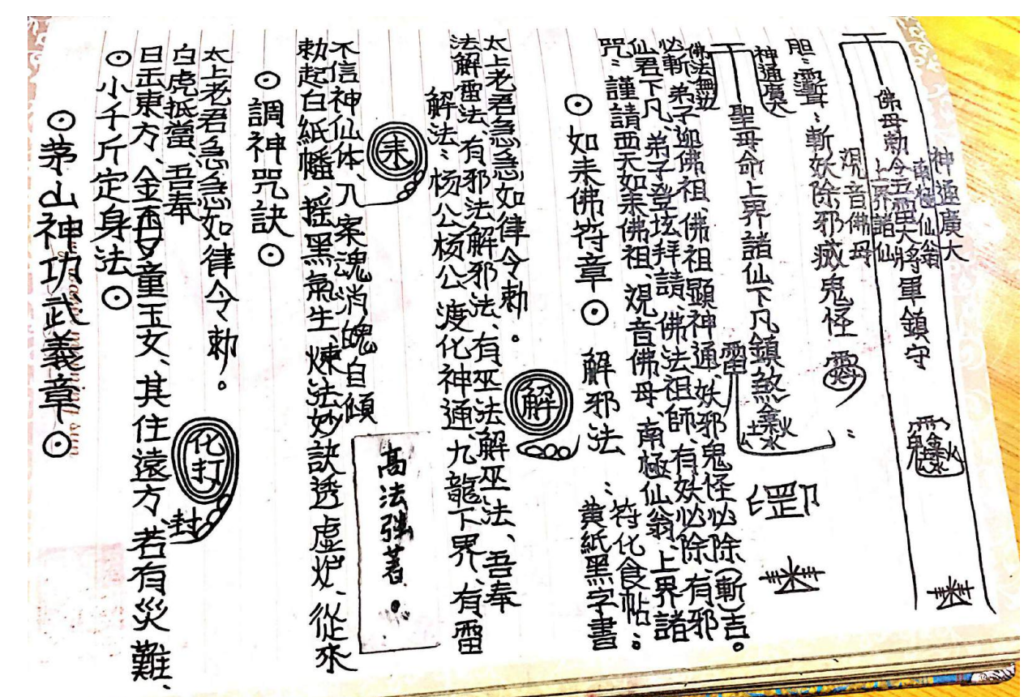 神通廣大
南極仙翁
佛母勅令五雷大將軍鎮守
上界諸仙
观音佛母
胆：靈聳：斬妖除邪滅鬼怪
神通廣大
聖母命上界諸仙下凡鎮煞
雷
火
土
水
佛法無边
必斬弟子迎佛祖、佛祖顯神通、妖邪鬼怪必除(斬)吉。
仙君下凡、弟子登坛拜請、佛法祖師、有妖必除、有邪
咒：謹請西天如来佛祖、观音佛母、南極仙翁、上界諸
⊙如来佛符章⊙解邪法：符化食帖：
黄紙黑字書
解
太上老君急急如律令勅。
法解雷法、有邪法解邪法、有巫法解巫法、吾奉
解法：杨公杨公、渡化神通、九龍下界、有雷
来
高法強著。
不信神仙体、入案魂消魄自傾
勅起白紙幡、摇黑氣生、煉法妙訣透虚炉、從来
⊙調神咒訣⊙
太上老君急急如律令勅。
化打
封
白虎抵當、吾奉
日出東方、金童玉女、其住遠方、若有災難、
⊙小千斤定身法⊙
⊙茅山神功武義章⊙